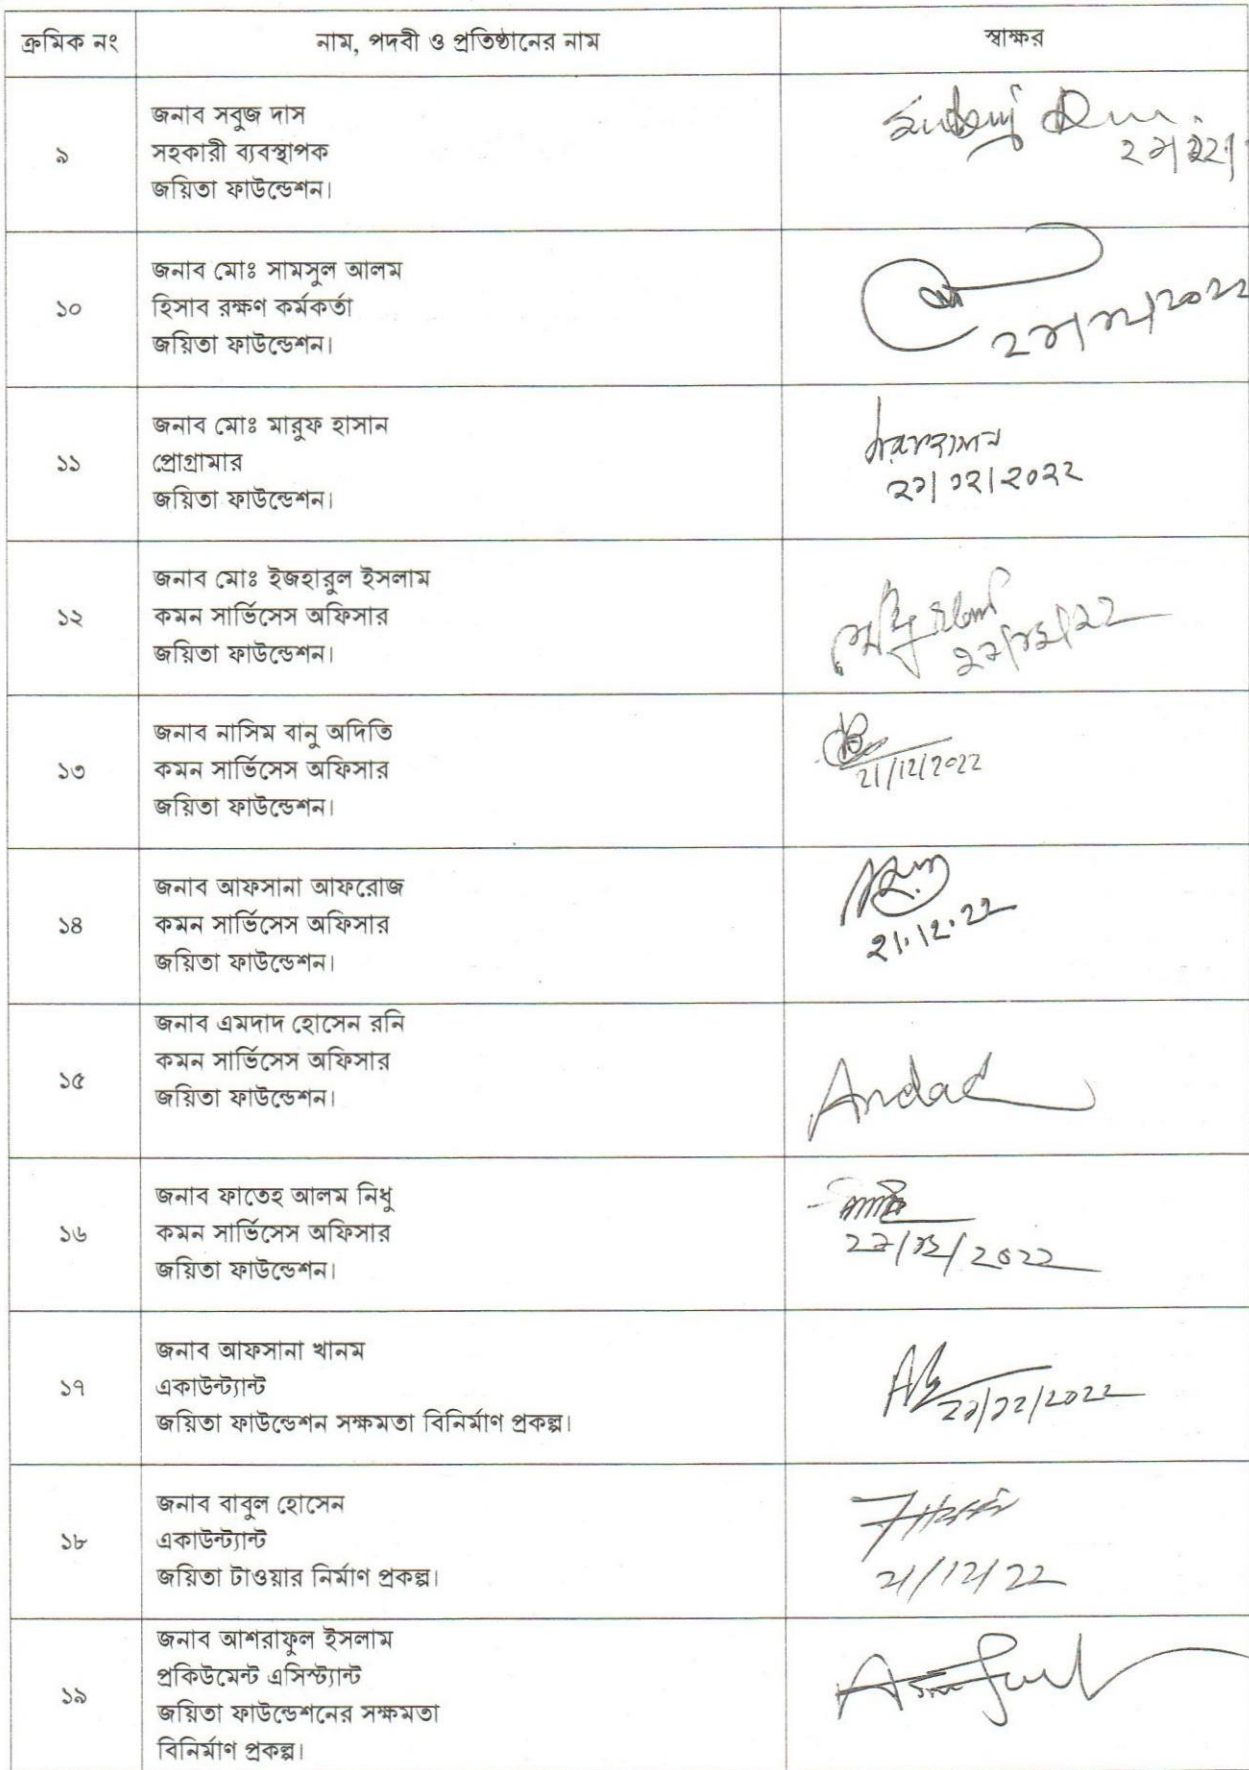 ক্রমিক নং নাম, পদবী ও প্রতিষ্ঠানের নাম স্বাক্ষর
জনাব সবুজ দাস
৯ সহকারী ব্যবস্থাপক
জয়িতা ফাউন্ডেশন।
জনাব মোঃ সামসুল আলম
১০ হিসাব রক্ষণ কর্মকর্তা
জয়িতা ফাউন্ডেশন।
২১/১২/২০২২
জনাব মোঃ মারুফ হাসান
১১ প্রোগ্রামার
জয়িতা ফাউন্ডেশন।
২১/১২/২০২২
জনাব মোঃ ইজহারুল ইসলাম
১২ কমন সার্ভিসেস অফিসার
জয়িতা ফাউন্ডেশন।
২১/১২/২২
জনাব নাসিম বানু অদিতি
১৩ কমন সার্ভিসেস অফিসার
জয়িতা ফাউন্ডেশন।
21/12/2022
জনাব আফসানা আফরোজ
১৪ কমন সার্ভিসেস অফিসার
জয়িতা ফাউন্ডেশন।
21.12.22
জনাব এমদাদ হোসেন রনি
১৫ কমন সার্ভিসেস অফিসার
জয়িতা ফাউন্ডেশন।
জনাব ফাতেহ আলম নিধু
১৬ কমন সার্ভিসেস অফিসার
জয়িতা ফাউন্ডেশন।
২১/১২/২০২২
জনাব আফসানা খানম
১৭ একাউন্ট্যান্ট
জয়িতা ফাউন্ডেশন সক্ষমতা বিনির্মাণ প্রকল্প।
২১/১২/২০২২
জনাব বাবুল হোসেন
১৮ একাউন্ট্যান্ট
জয়িতা টাওয়ার নির্মাণ প্রকল্প।
21/12/22
জনাব আশরাফুল ইসলাম
প্রকিউমেন্ট এসিস্ট্যান্ট
১৯ জয়িতা ফাউন্ডেশনের সক্ষমতা
বিনির্মাণ প্রকল্প।